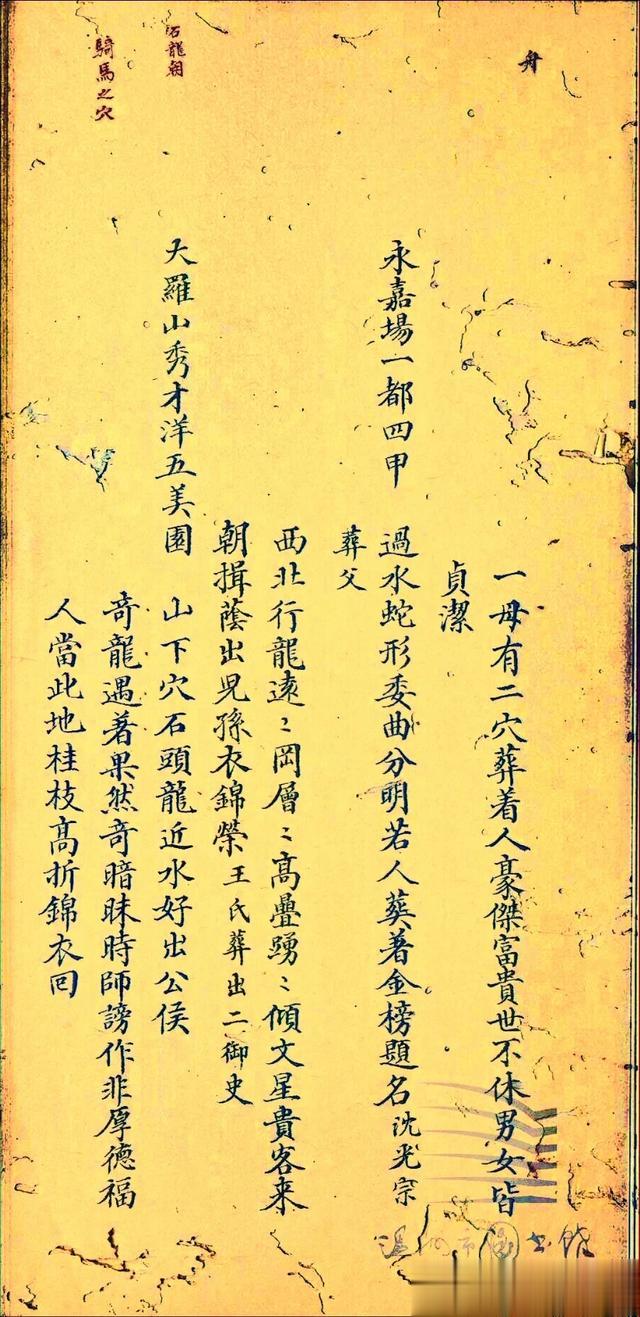 舟
一母有二穴葬着人豪傑富貴世不休男女皆
貞潔
永嘉場一都四甲
過水蛇形委曲分明若人葬著金榜題名沈光宗
葬父
西北行龍遠〻岡層〻高疊踴〻傾文星貴客来
朝揖蔭出兒孫衣錦榮王氏葬出二御史
石龍朝
大羅山秀才洋五美園
山下穴石頭龍近水好出公侯
騎馬之穴
竒龍遇著果然竒暗昧時師謗作非厚德福
人當此地桂枝髙折錦衣回